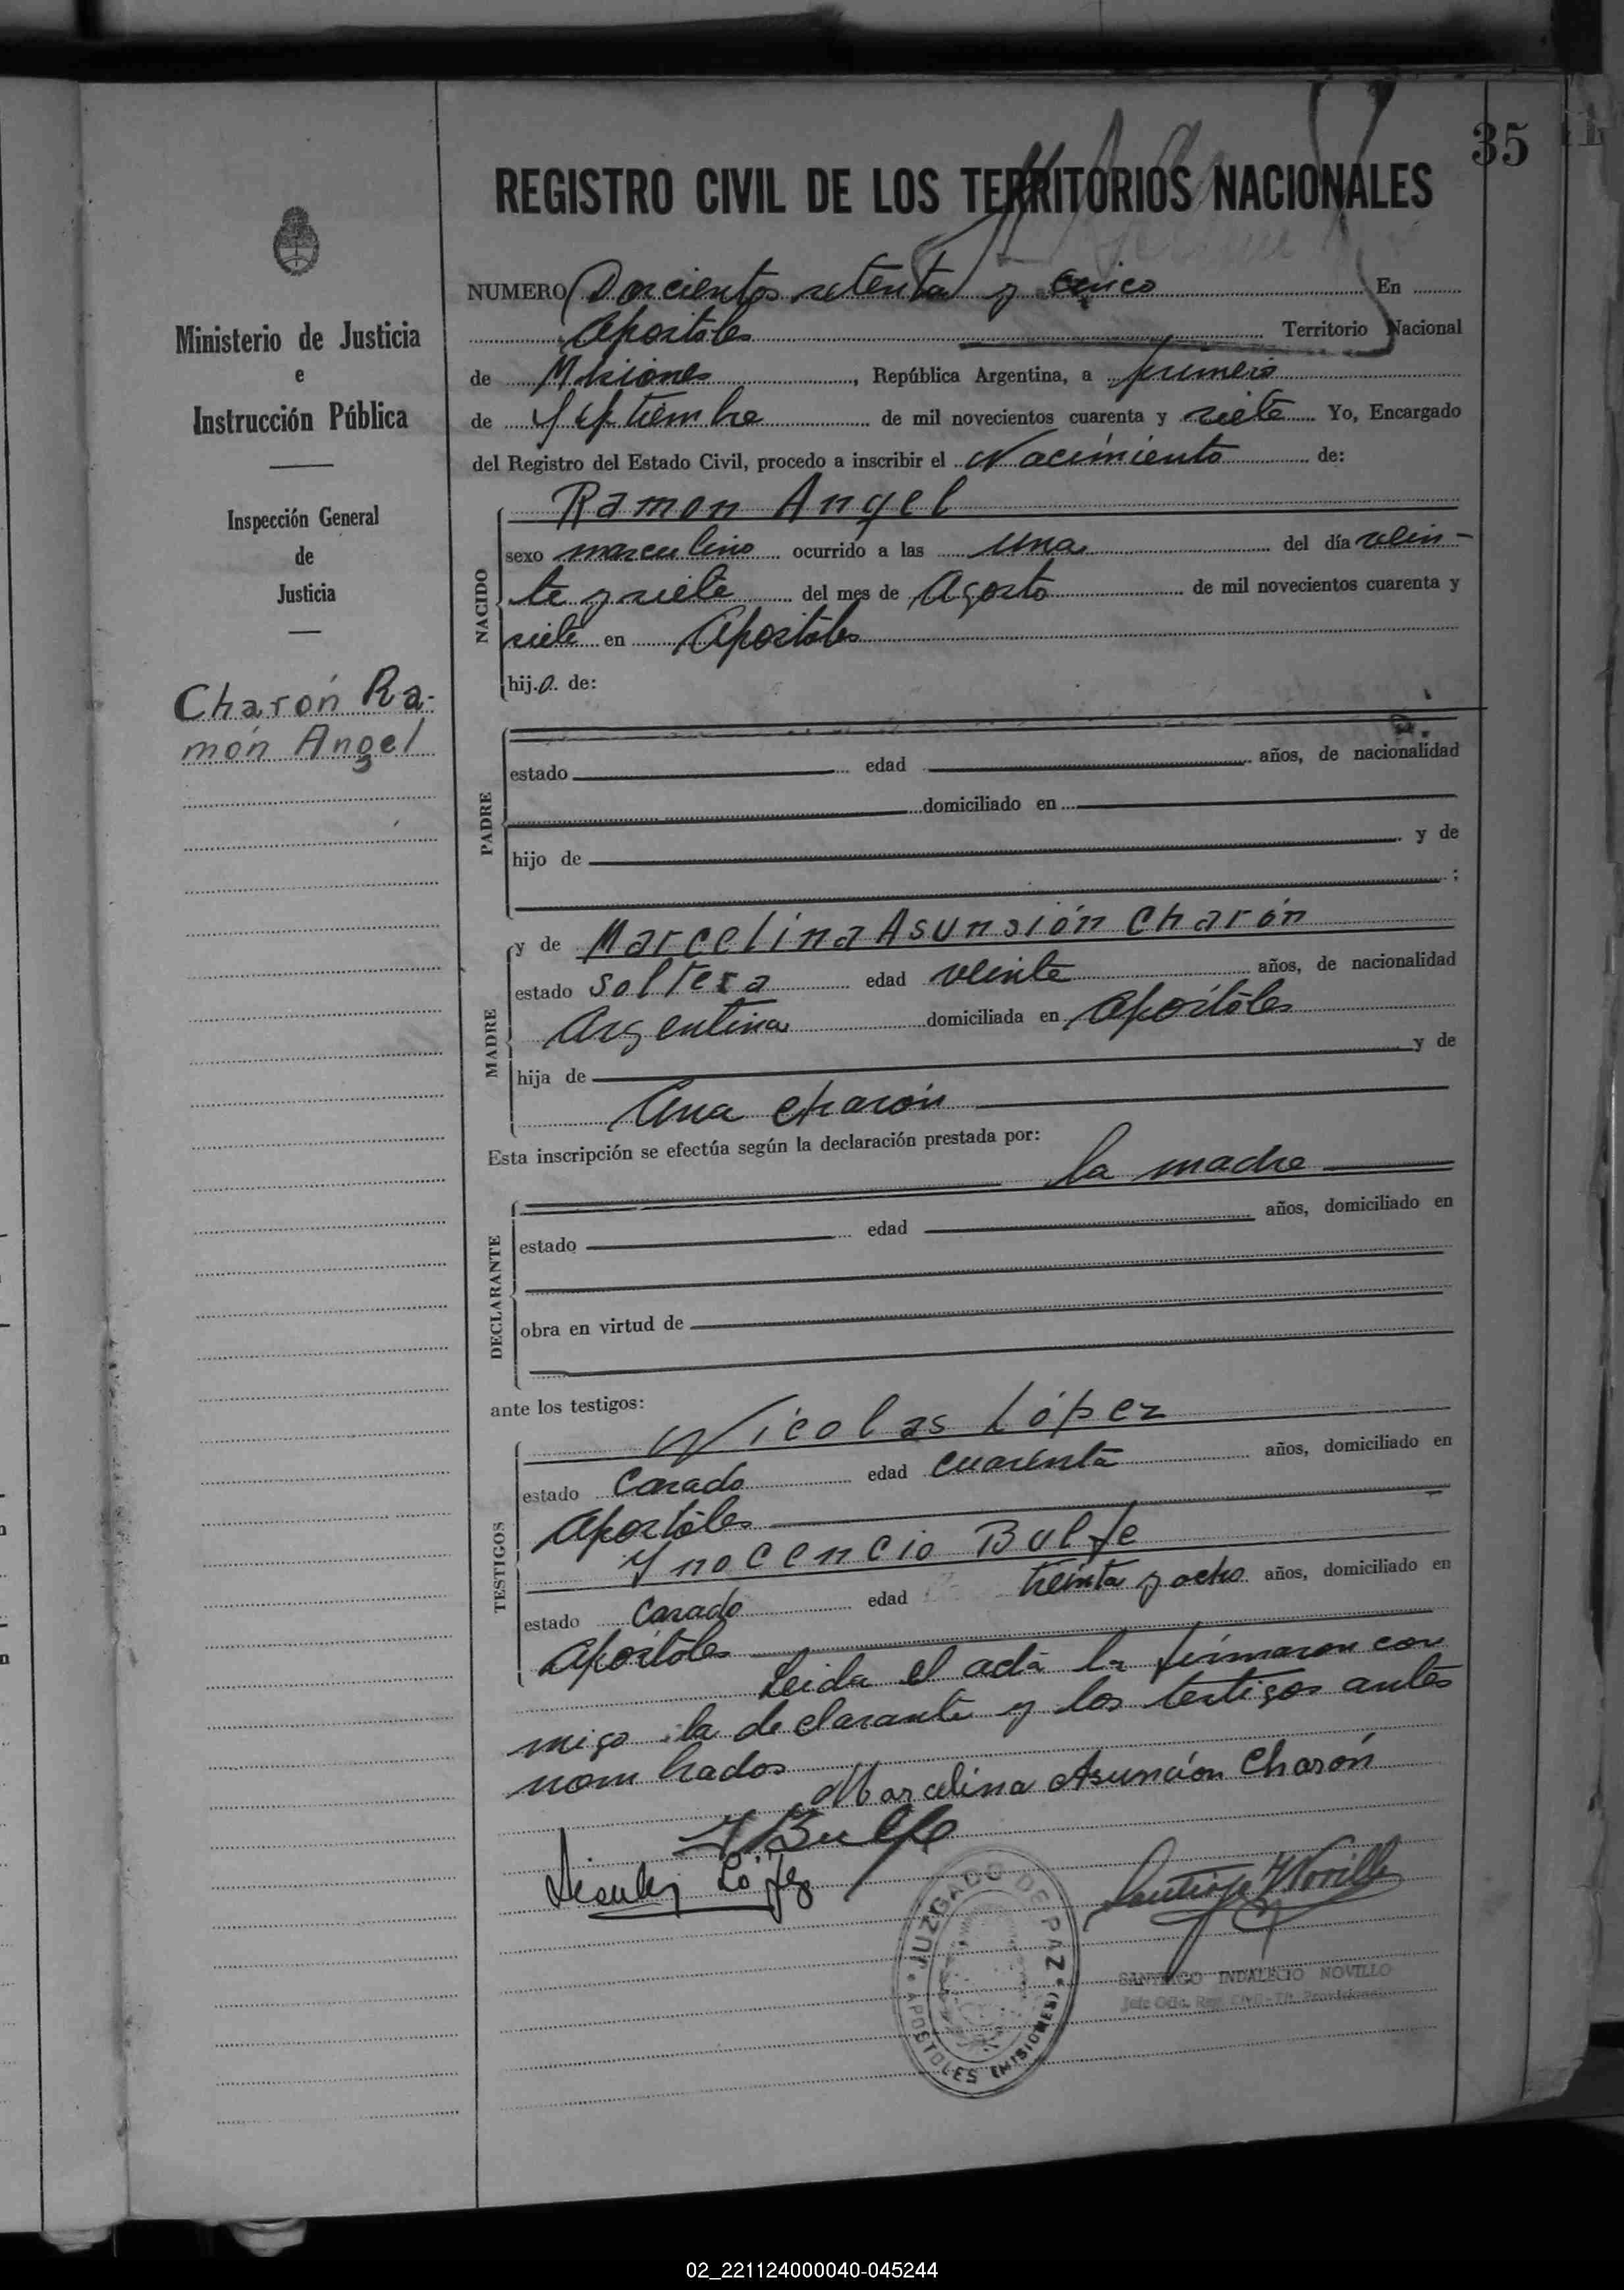 35
REGISTRO CIVIL DE LOS TERRITORIOS NACIONALES
Ministerio de Justicia
e
Instrucción Pública
Inspección General
de
Justicia
Charón Ra-
món Angel
NUMERO Doscientos setenta y cinco En
Apostoles Territorio Nacional
de Misiones, República Argentina, a primero
de Septiembre de mil novecientos cuarenta y siete Yo, Encargado
del Registro del Estado Civil, procedo a inscribir el Nacimiento de:
NACIDO
Ramon Angel
sexo masculino ocurrido a las una del día vein-
te y siete del mes de Agosto de mil novecientos cuarenta y
siete en Apostoles
hijo de:
PADRE
estado edad años, de nacionalidad
domiciliado en
hijo de y de
;
MADRE
y de Marcelina Asunsión Charón
estado soltera edad veinte años, de nacionalidad
Argentina domiciliada en Apostoles
hija de y de
Ana Charón
Esta inscripción se efectúa según la declaración prestada por:
la madre
DECLARANTE
estado edad años, domiciliado en
obra en virtud de
ante los testigos:
TESTIGOS
Nicolas López
estado Casado edad cuarenta años, domiciliado en
Apostoles
Ynocencio Bulfe
estado Casado edad treinta y ocho años, domiciliado en
Apostoles
Leida el acta la firmaron con
migo la declarante y los testigos antes
nombrados
Marcelina Asunción Charón
Y Bulfe
López
JUZGADO DE PAZ
APOSTOLES (MISIONES)
Santiago Y Novillo
SANTIAGO INDALECIO NOVILLO
Jefe Ofic. Reg. Civil
02_221124000040-045244